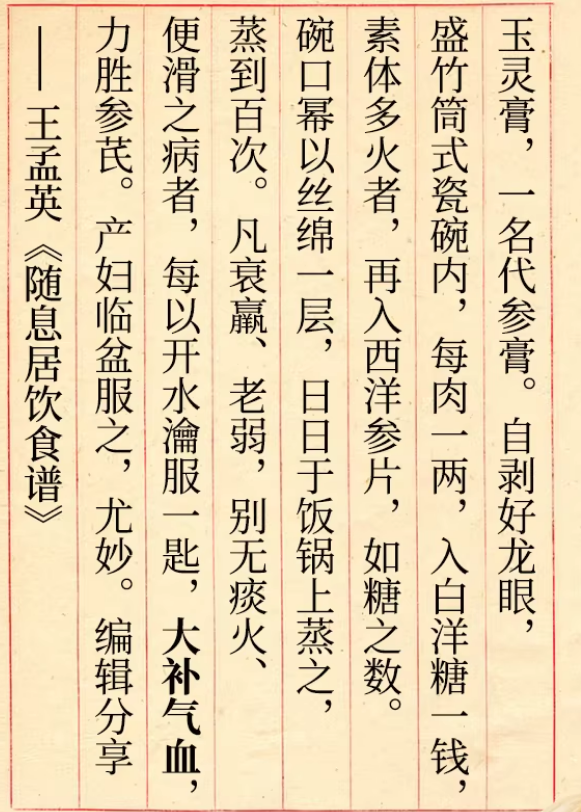 玉灵膏，一名代参膏。自剥好龙眼，
盛竹筒式瓷碗内，每肉一两，入白洋糖一钱，
素体多火者，再入西洋参片，如糖之数。
碗口幂以丝绵一层，日日于饭锅上蒸之，
蒸到百次。凡衰羸、老弱，别无痰火、
便滑之病者，每以开水瀹服一匙，大补气血，
力胜参芪。产妇临盆服之，尤妙。编辑分享
——王孟英《随息居饮食谱》